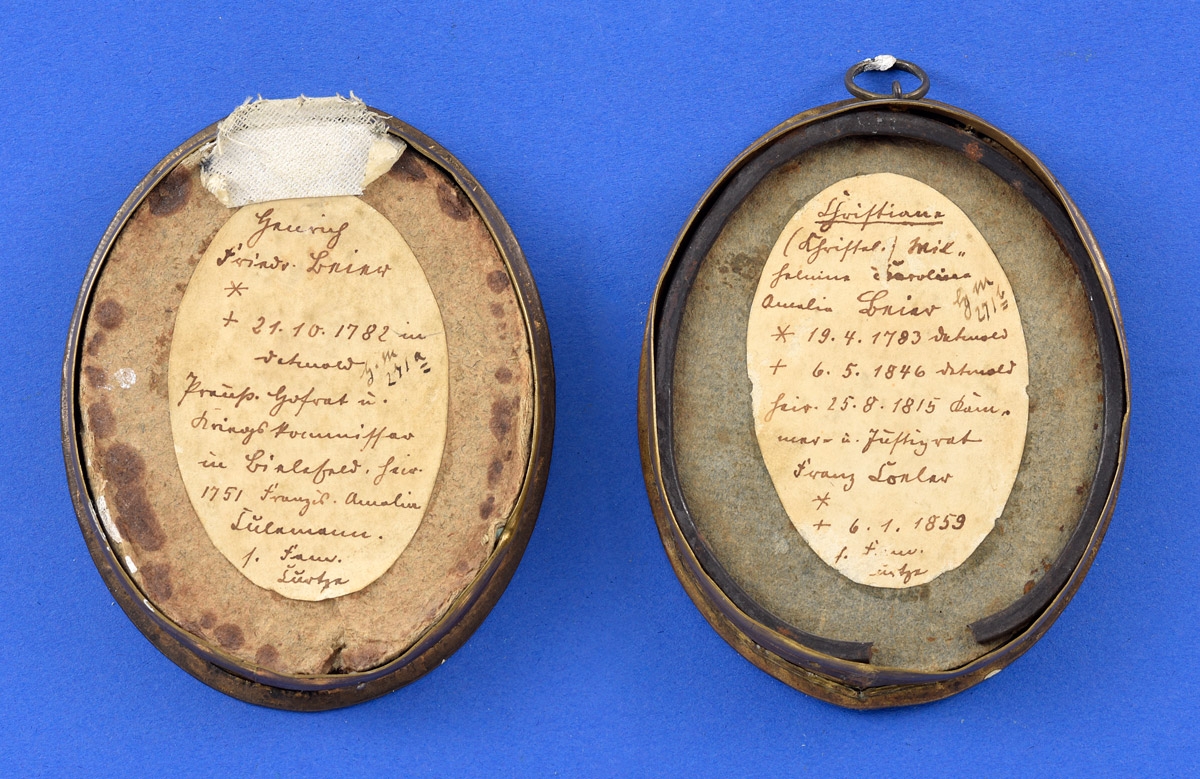 Henrich
Friedr. Beier
*
+ 21. 10. 1782 in
Detmold
H. M
271 a
Preuß. Hofrat u.
Kriegskommissar
in Bielefeld. heir.
1751 Franzis. Amalia
Culemann.
s. Fam.
Curtze
Christiane
(Christel.) Wil„
helmine Karoline
Amalia Beier
H. M
271 b
* 19. 4. 1783 Detmold
+ 6. 5. 1846 Detmold
heir. 25. 8. 1815 Kam„
mer- u. Justizrat
Franz
*
+ 6. 1. 1859
s. Fam.
Curtze